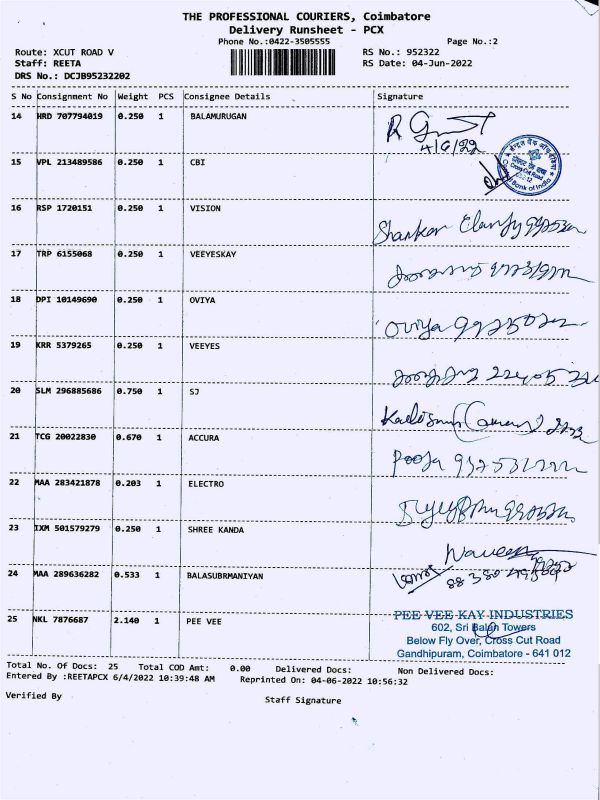 THE PROFESSIONAL COURIERS, Coimbatore
Delivery Runsheet - PCX
Phone No.:0422-3505555 Page No.:2
Route: XCUT ROAD V RS No.: 952322
Staff: REETA RS Date: 04-Jun-2022
DRS No.: DCJB95232202
S No Consignment No Weight PCS Consignee Details Signature
14 HRD 707794019 0.250 1 BALAMURUGAN
4/6/22
15 VPL 213489586 0.250 1 CBI
Cross Cut Road
Bank of India
16 RSP 1720151 0.250 1 VISION
Shankar
17 TRP 6155068 0.250 1 VEEYESKAY
18 DPI 10149690 0.250 1 OVIYA
Oviya
19 KRR 5379265 0.250 1 VEEYES
20 SLM 296885686 0.750 1 SJ
21 TCG 20022830 0.670 1 ACCURA
Pooja
22 MAA 283421878 0.203 1 ELECTRO
23 IXM 501579279 0.250 1 SHREE KANDA
Naveen
24 MAA 289636282 0.533 1 BALASUBRMANIYAN
25 NKL 7876687 2.140 1 PEE VEE
PEE VEE KAY INDUSTRIES
602, Sri Balaji Towers
Below Fly Over, Cross Cut Road
Gandhipuram, Coimbatore - 641 012
Total No. Of Docs: 25 Total COD Amt: 0.00 Delivered Docs: Non Delivered Docs:
Entered By :REETAPCX 6/4/2022 10:39:48 AM Reprinted On: 04-06-2022 10:56:32
Verified By Staff Signature